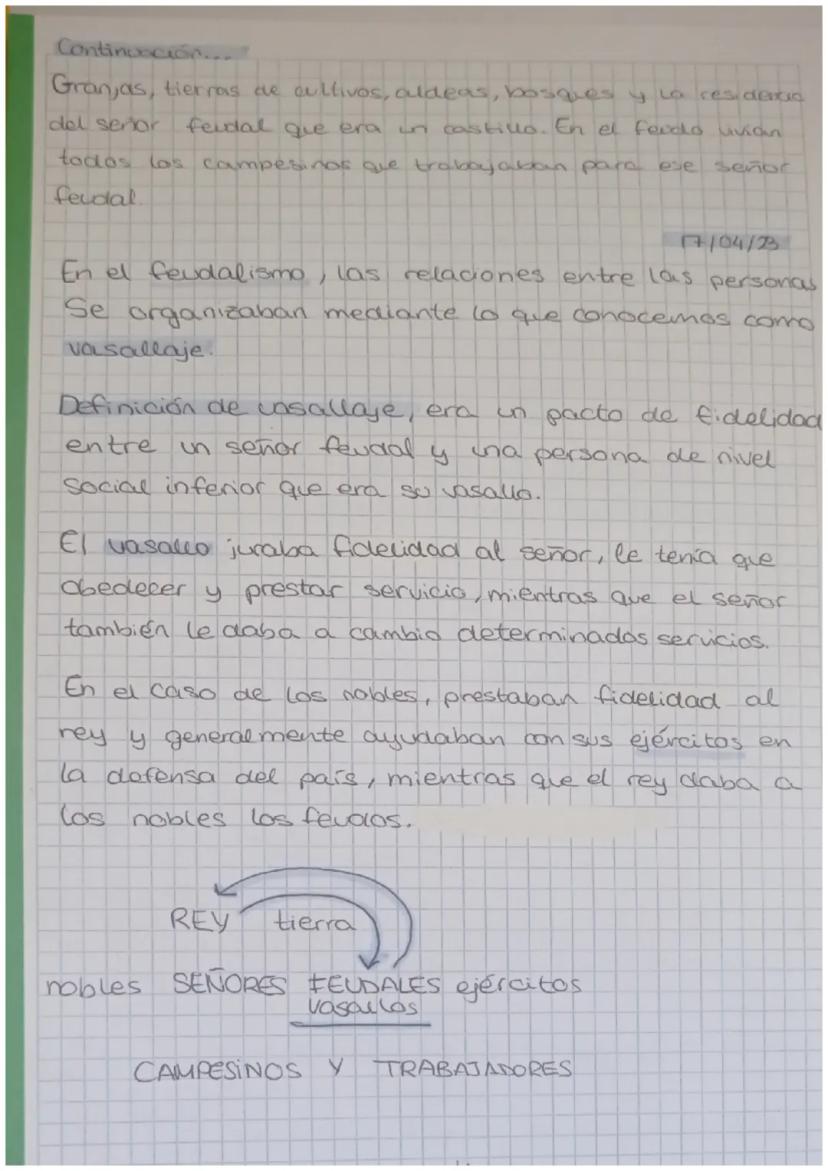 Continuación...
Granjas, tierras de cultivos, aldeas, bosques y la residencia
del señor feudal que era un castillo. En el feudo vivían
todos los campesinos que trabajaban para ese señor
feudal.
17/04/23
En el feudalismo, las relaciones entre las personas
Se organizaban mediante lo que conocemos como
vasallaje.
Definición de vasallaje, era un pacto de fidelidad
entre un señor feudal y una persona de nivel
social inferior que era su vasallo.
El vasallo juraba fidelidad al señor, le tenía que
obedecer y prestar servicio, mientras que el señor
también le daba a cambio determinados servicios.
En el caso de los nobles, prestaban fidelidad al
rey y generalmente ayudaban con sus ejércitos en
la defensa del país, mientras que el rey daba a
los nobles los feudos.
REY tierra
nobles SEÑORES FEUDALES ejércitos
vasallos
CAMPESINOS Y TRABAJADORES